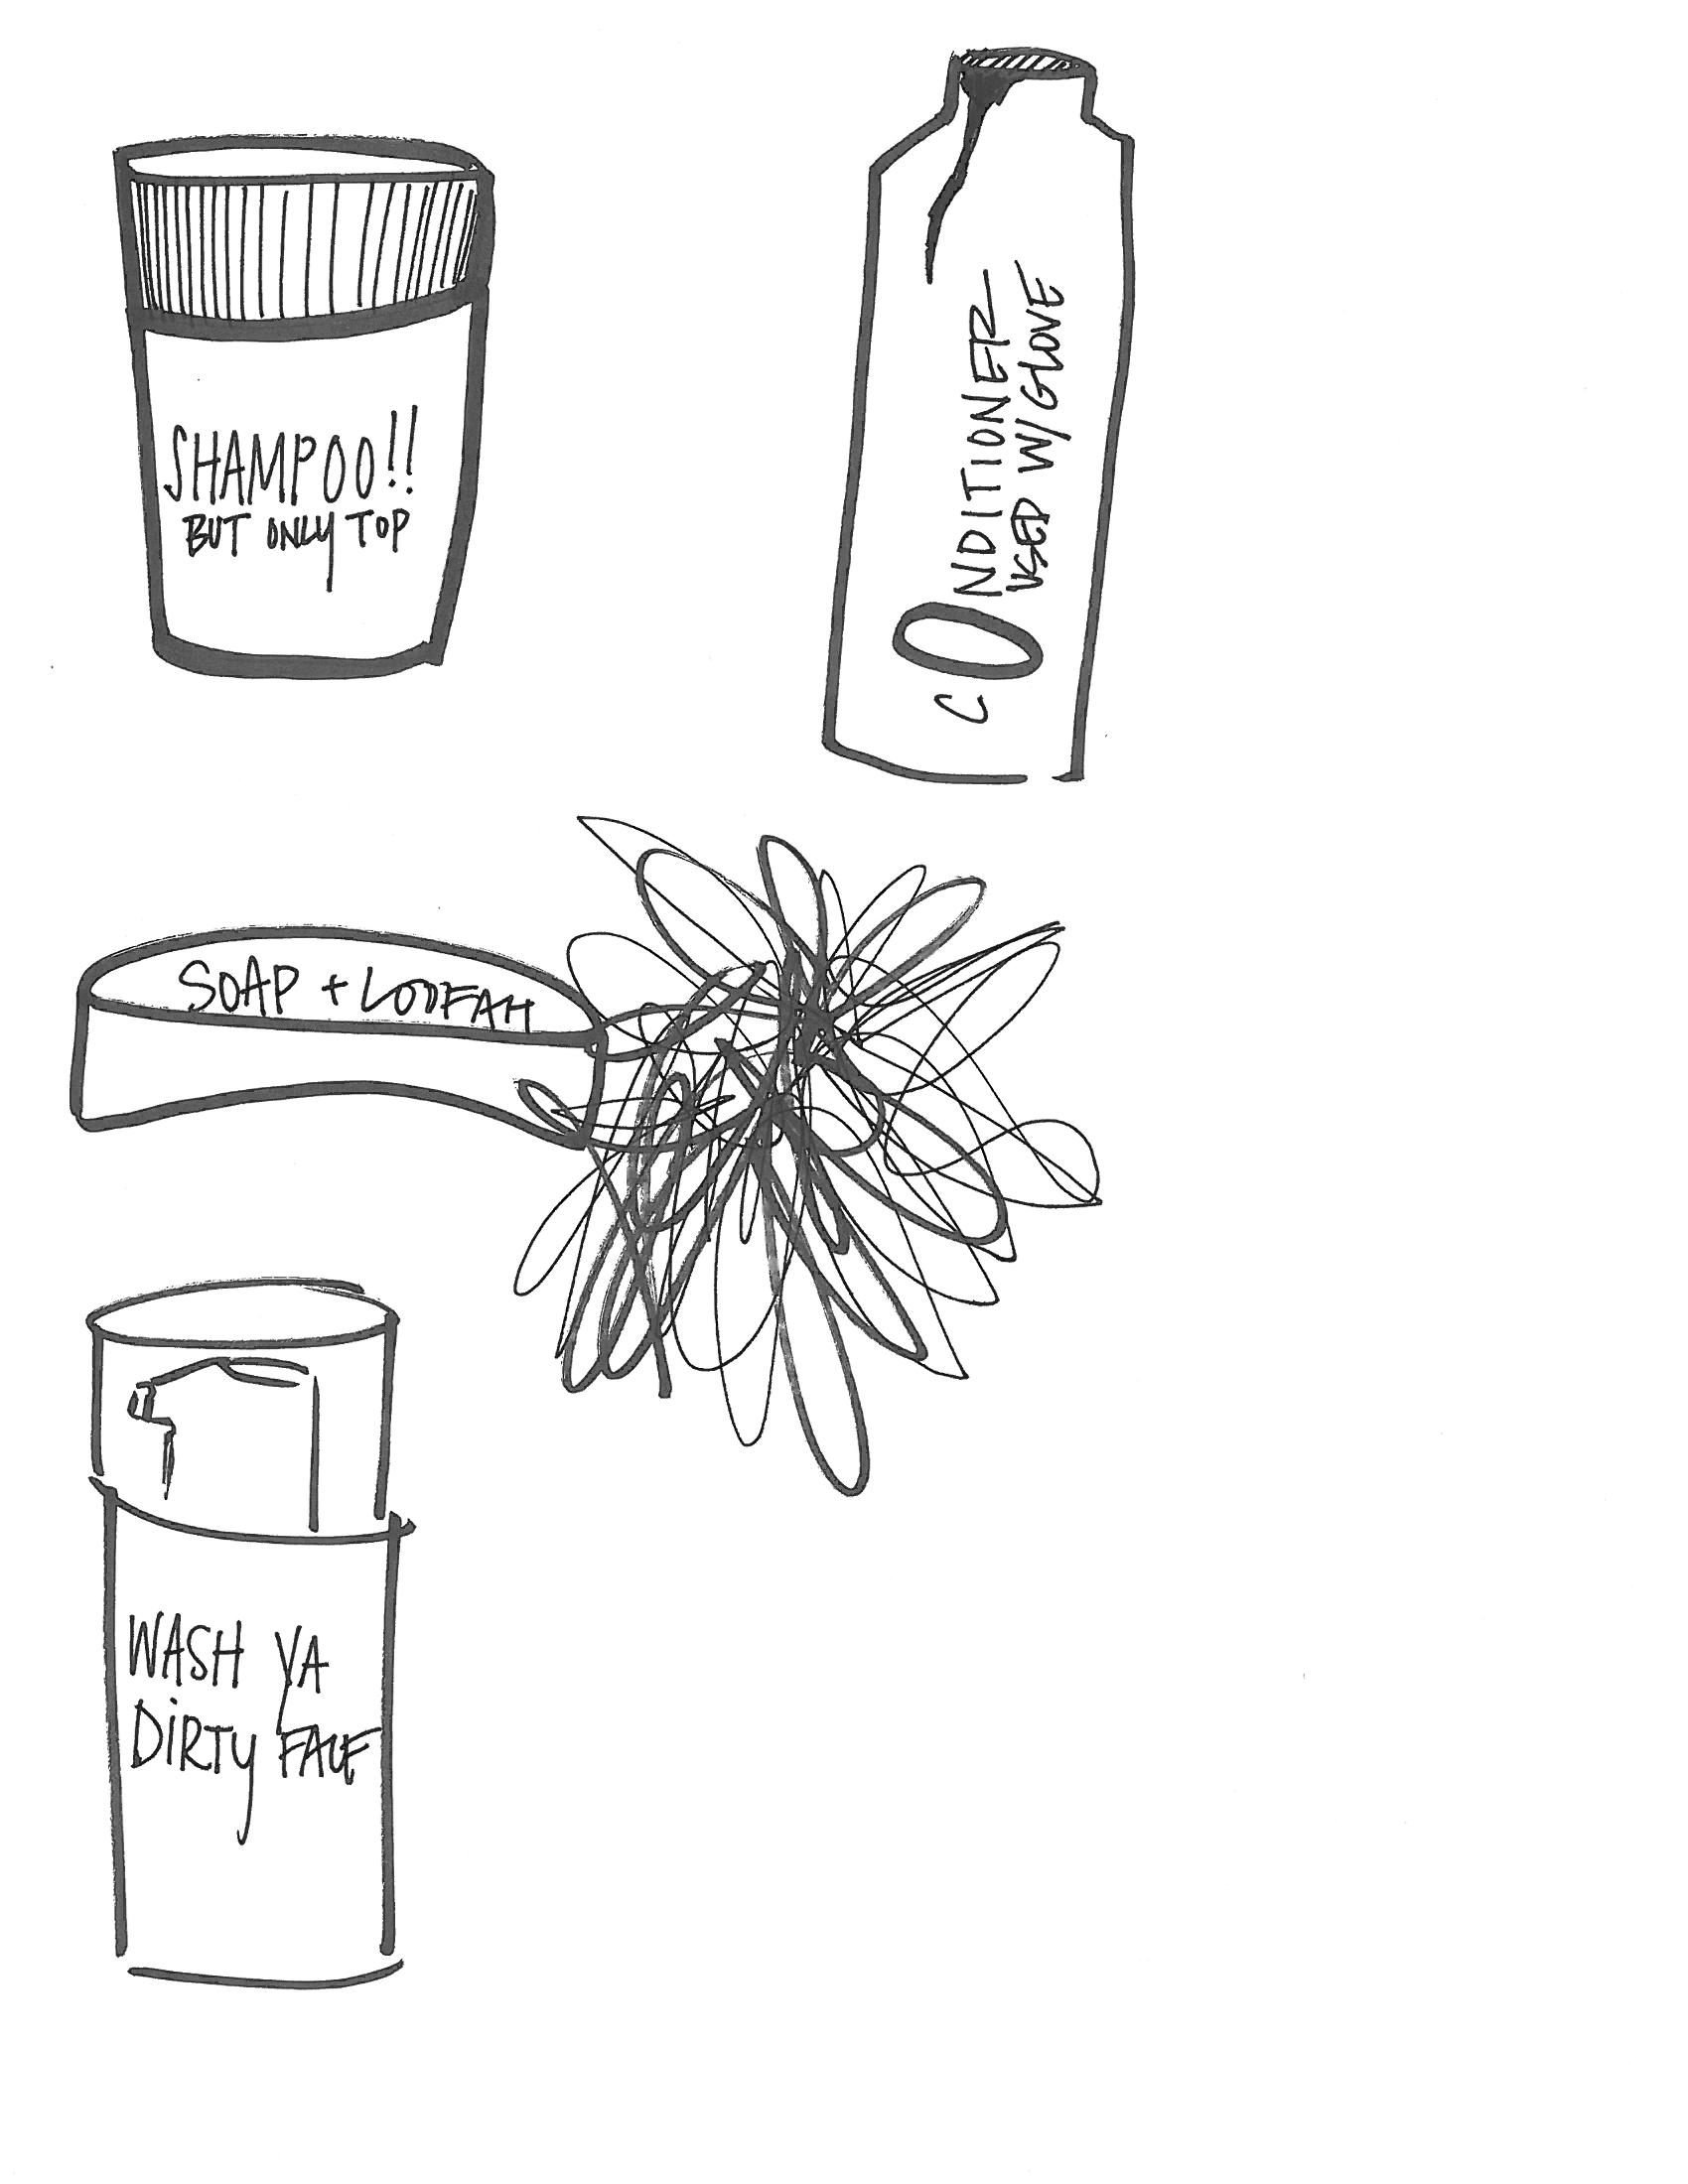 SHAMPOO!!
BUT ONLY TOP
CONDITIONER
USED W/ GLOVE
SOAP + LOOFAH
WASH YA
DIRTY FACE